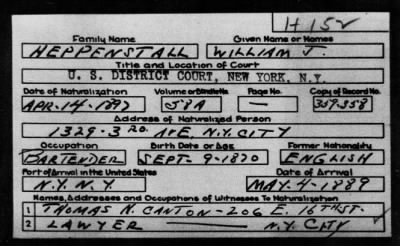 H 152
Family Name Given Name or Names
HEPPENSTALL WILLIAM J.
Title and Location of Court
U. S. DISTRICT COURT, NEW YORK, N.Y.
Date of Naturalization Volume or Bundle No. Page No. Copy of Record No.
APR-14-1897 58A — 359-358
Address of Naturalized Person
1329-3RD. AVE, N.Y. CITY
Occupation Birth Date or Age Former Nationality
BARTENDER SEPT-9-1870 ENGLISH
Port of Arrival in the United States Date of Arrival
N.Y. N.Y. MAY-4-1889
Names, Addresses and Occupations of Witnesses To Naturalization
1 THOMAS N. CANTON-206 E. 16TH ST.
2 LAWYER — N.Y. CITY